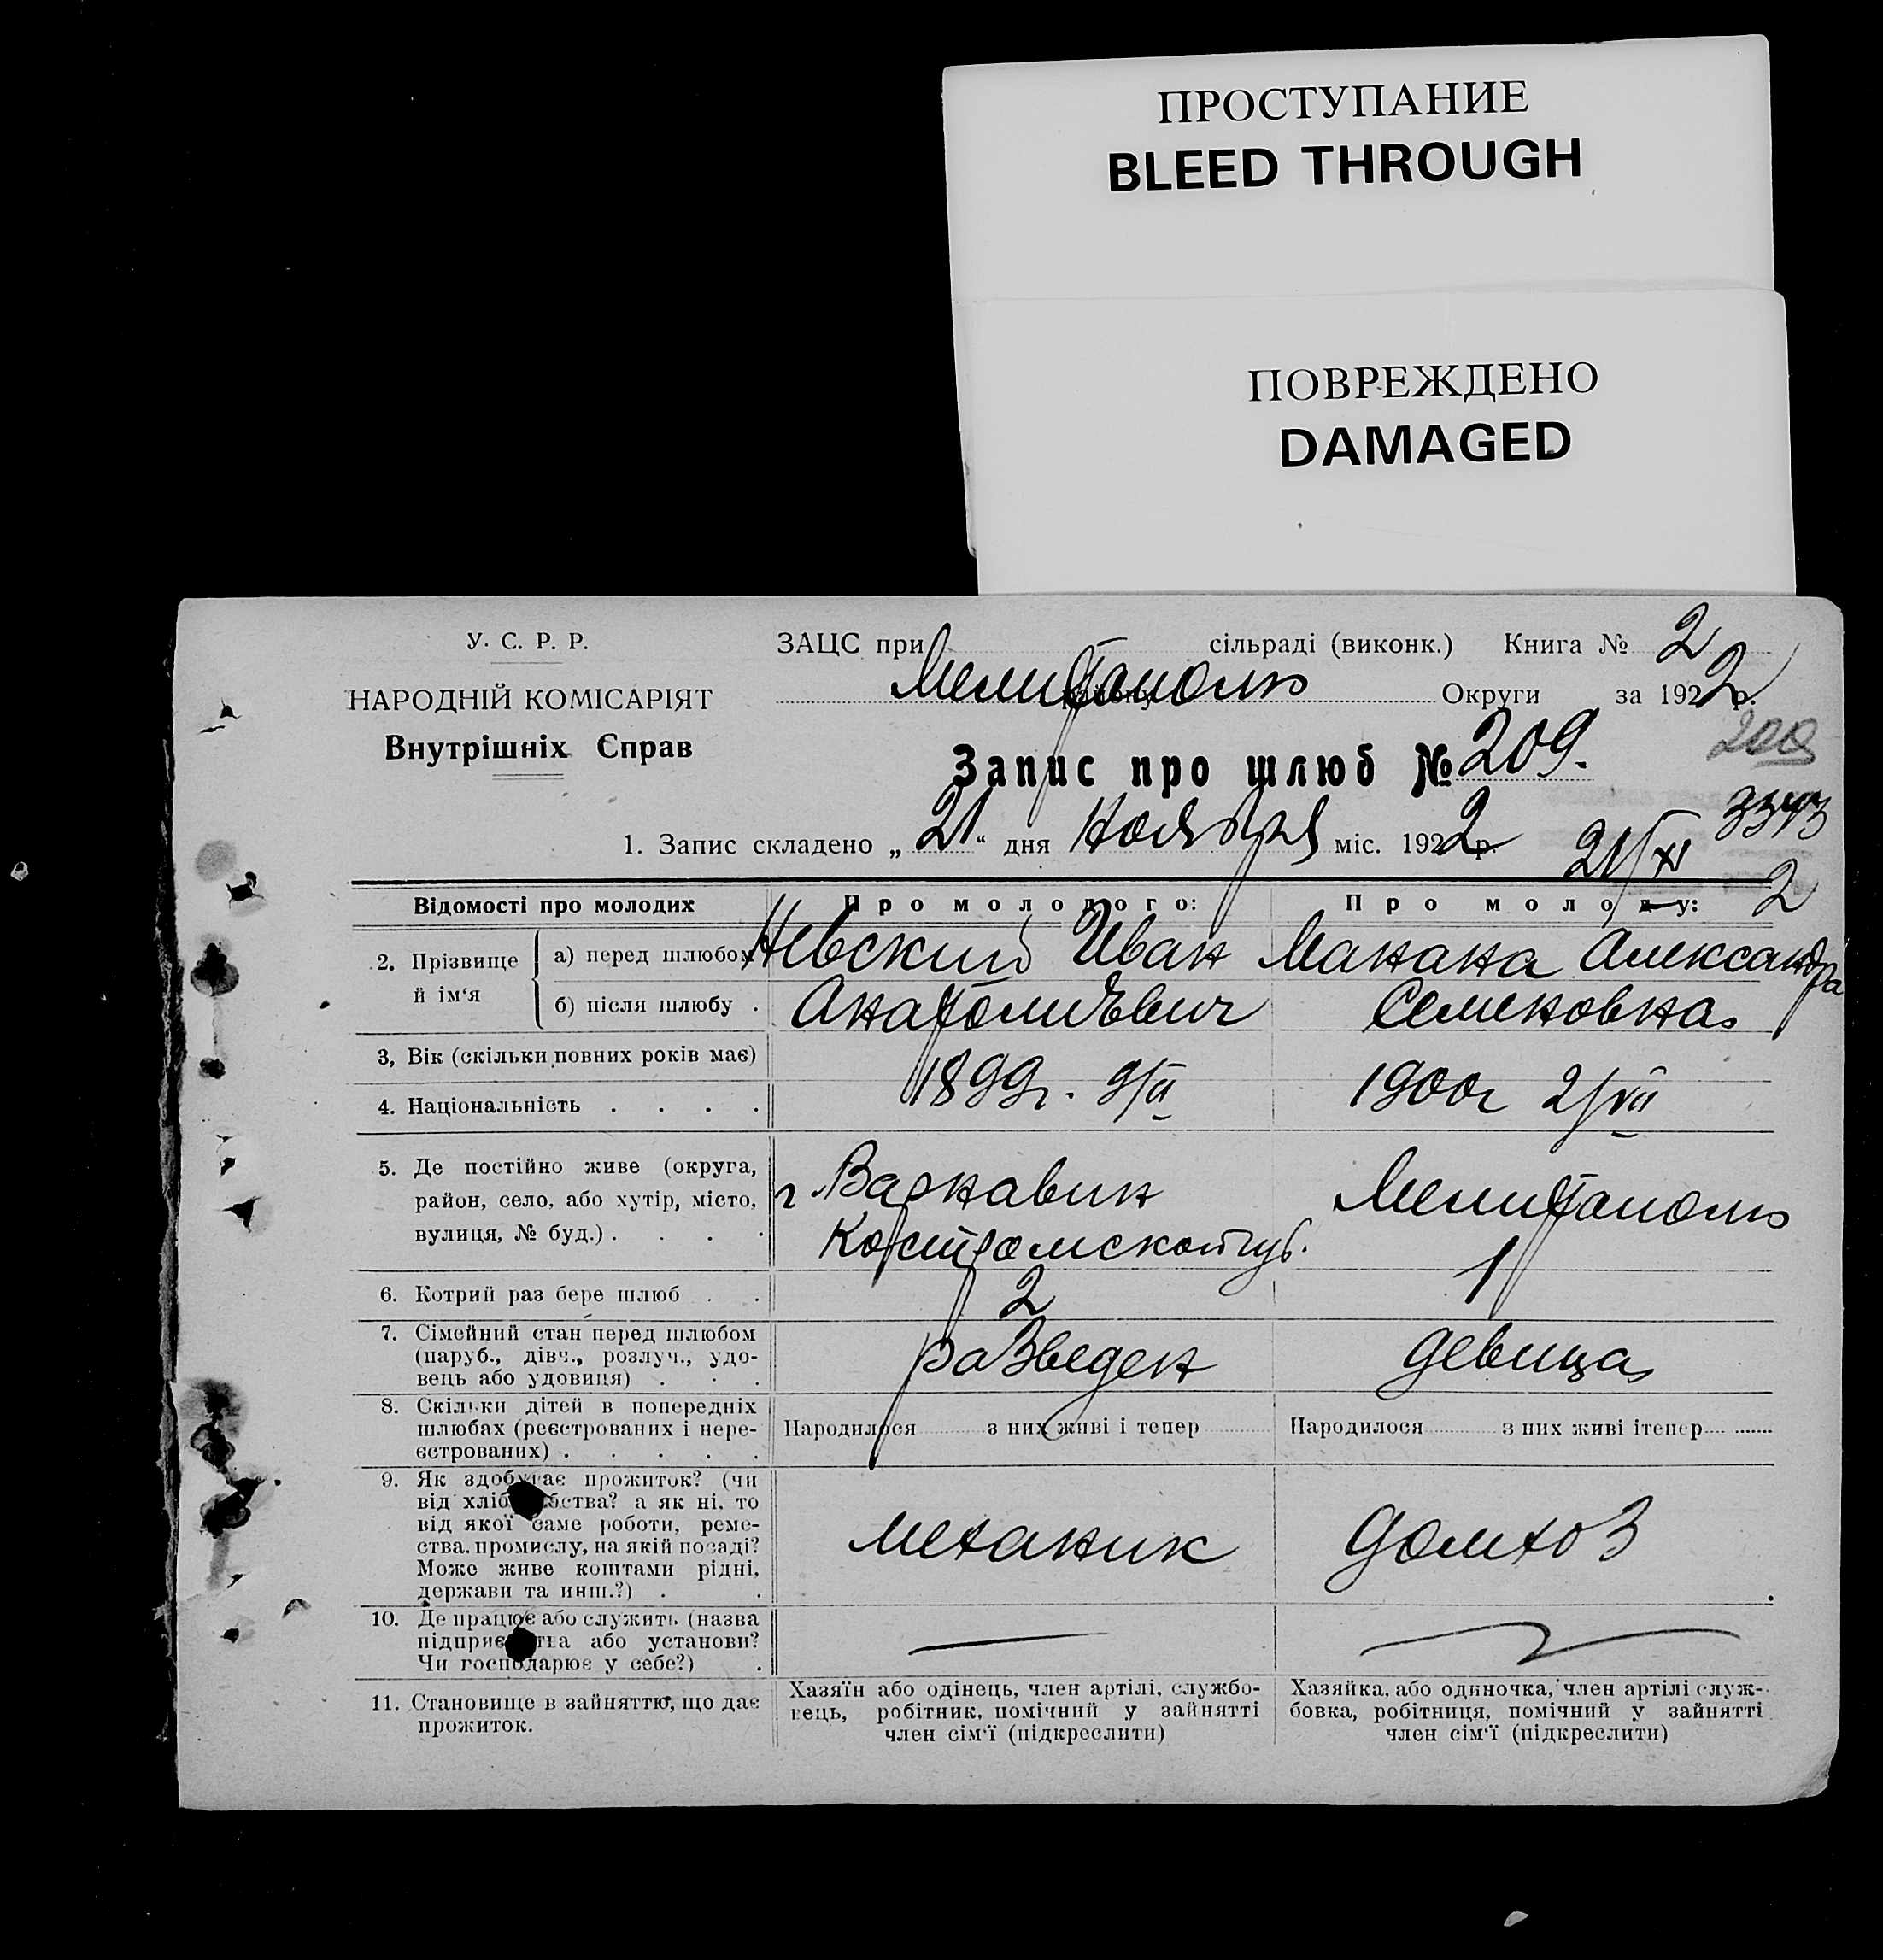 ПРОСТУПАНИЕ
BLEED THROUGH
ПОВРЕЖДЕНО
DAMAGED
У. С. Р. Р.
НАРОДНІЙ КОМІСАРІЯТ
Внутрішніх Справ
ЗАЦС при сільраді (виконк.) Книга № 2
Мелитополь району Округи за 1922 р.
Запис про шлюб № 209.
209
3343
1. Запис складено „21“ дня Ноября міс. 1922 р.
21/XI 2
Відомості про молодих
Про молодого:
Про молоду:
2. Прізвище й ім‘я
а) перед шлюбом
б) після шлюбу .
Невский Иван
Анатолиевич
Манана Александра
Семеновна
3, Вік (скільки повних років має)
4. Національність . . . .
1899г. 9/II
1900г 2/VII
5. Де постійно живе (округа,
район, село, або хутір, місто,
вулиця, № буд.) . . . .
г
Костромской губ.
Мелитополь
6. Котрий раз бере шлюб . .
2
1
7. Сімейний стан перед шлюбом
(паруб., дівч., розлуч., удо-
вець або удовиця) . . .
разведен
девица
8. Скільки дітей в попередніх
шлюбах (реєстрованих і нере-
єстрованих) . . . . .
Народилося з них живі і тепер
Народилося з них живі ітепер
9. Як здобуває прожиток? (чи
від хліб бства? а як ні, то
від якої саме роботи, реме-
ства, промислу, на якій посаді?
Може живе коштами рідні,
держави та инш.?) . .
механик
домхоз
10. Де працює або служить (назва
підприє тва або установи?
Чи господарює у себе?) .
11. Становище в зайняттю, що дає
прожиток.
Хазяїн або одінець, член артілі, службо-
вець, робітник, помічний у зайнятті
член сім‘ї (підкреслити)
Хазяйка, або одиночка, член артілі служ-
бовка, робітниця, помічний у зайнятті
член сім‘ї (підкреслити)